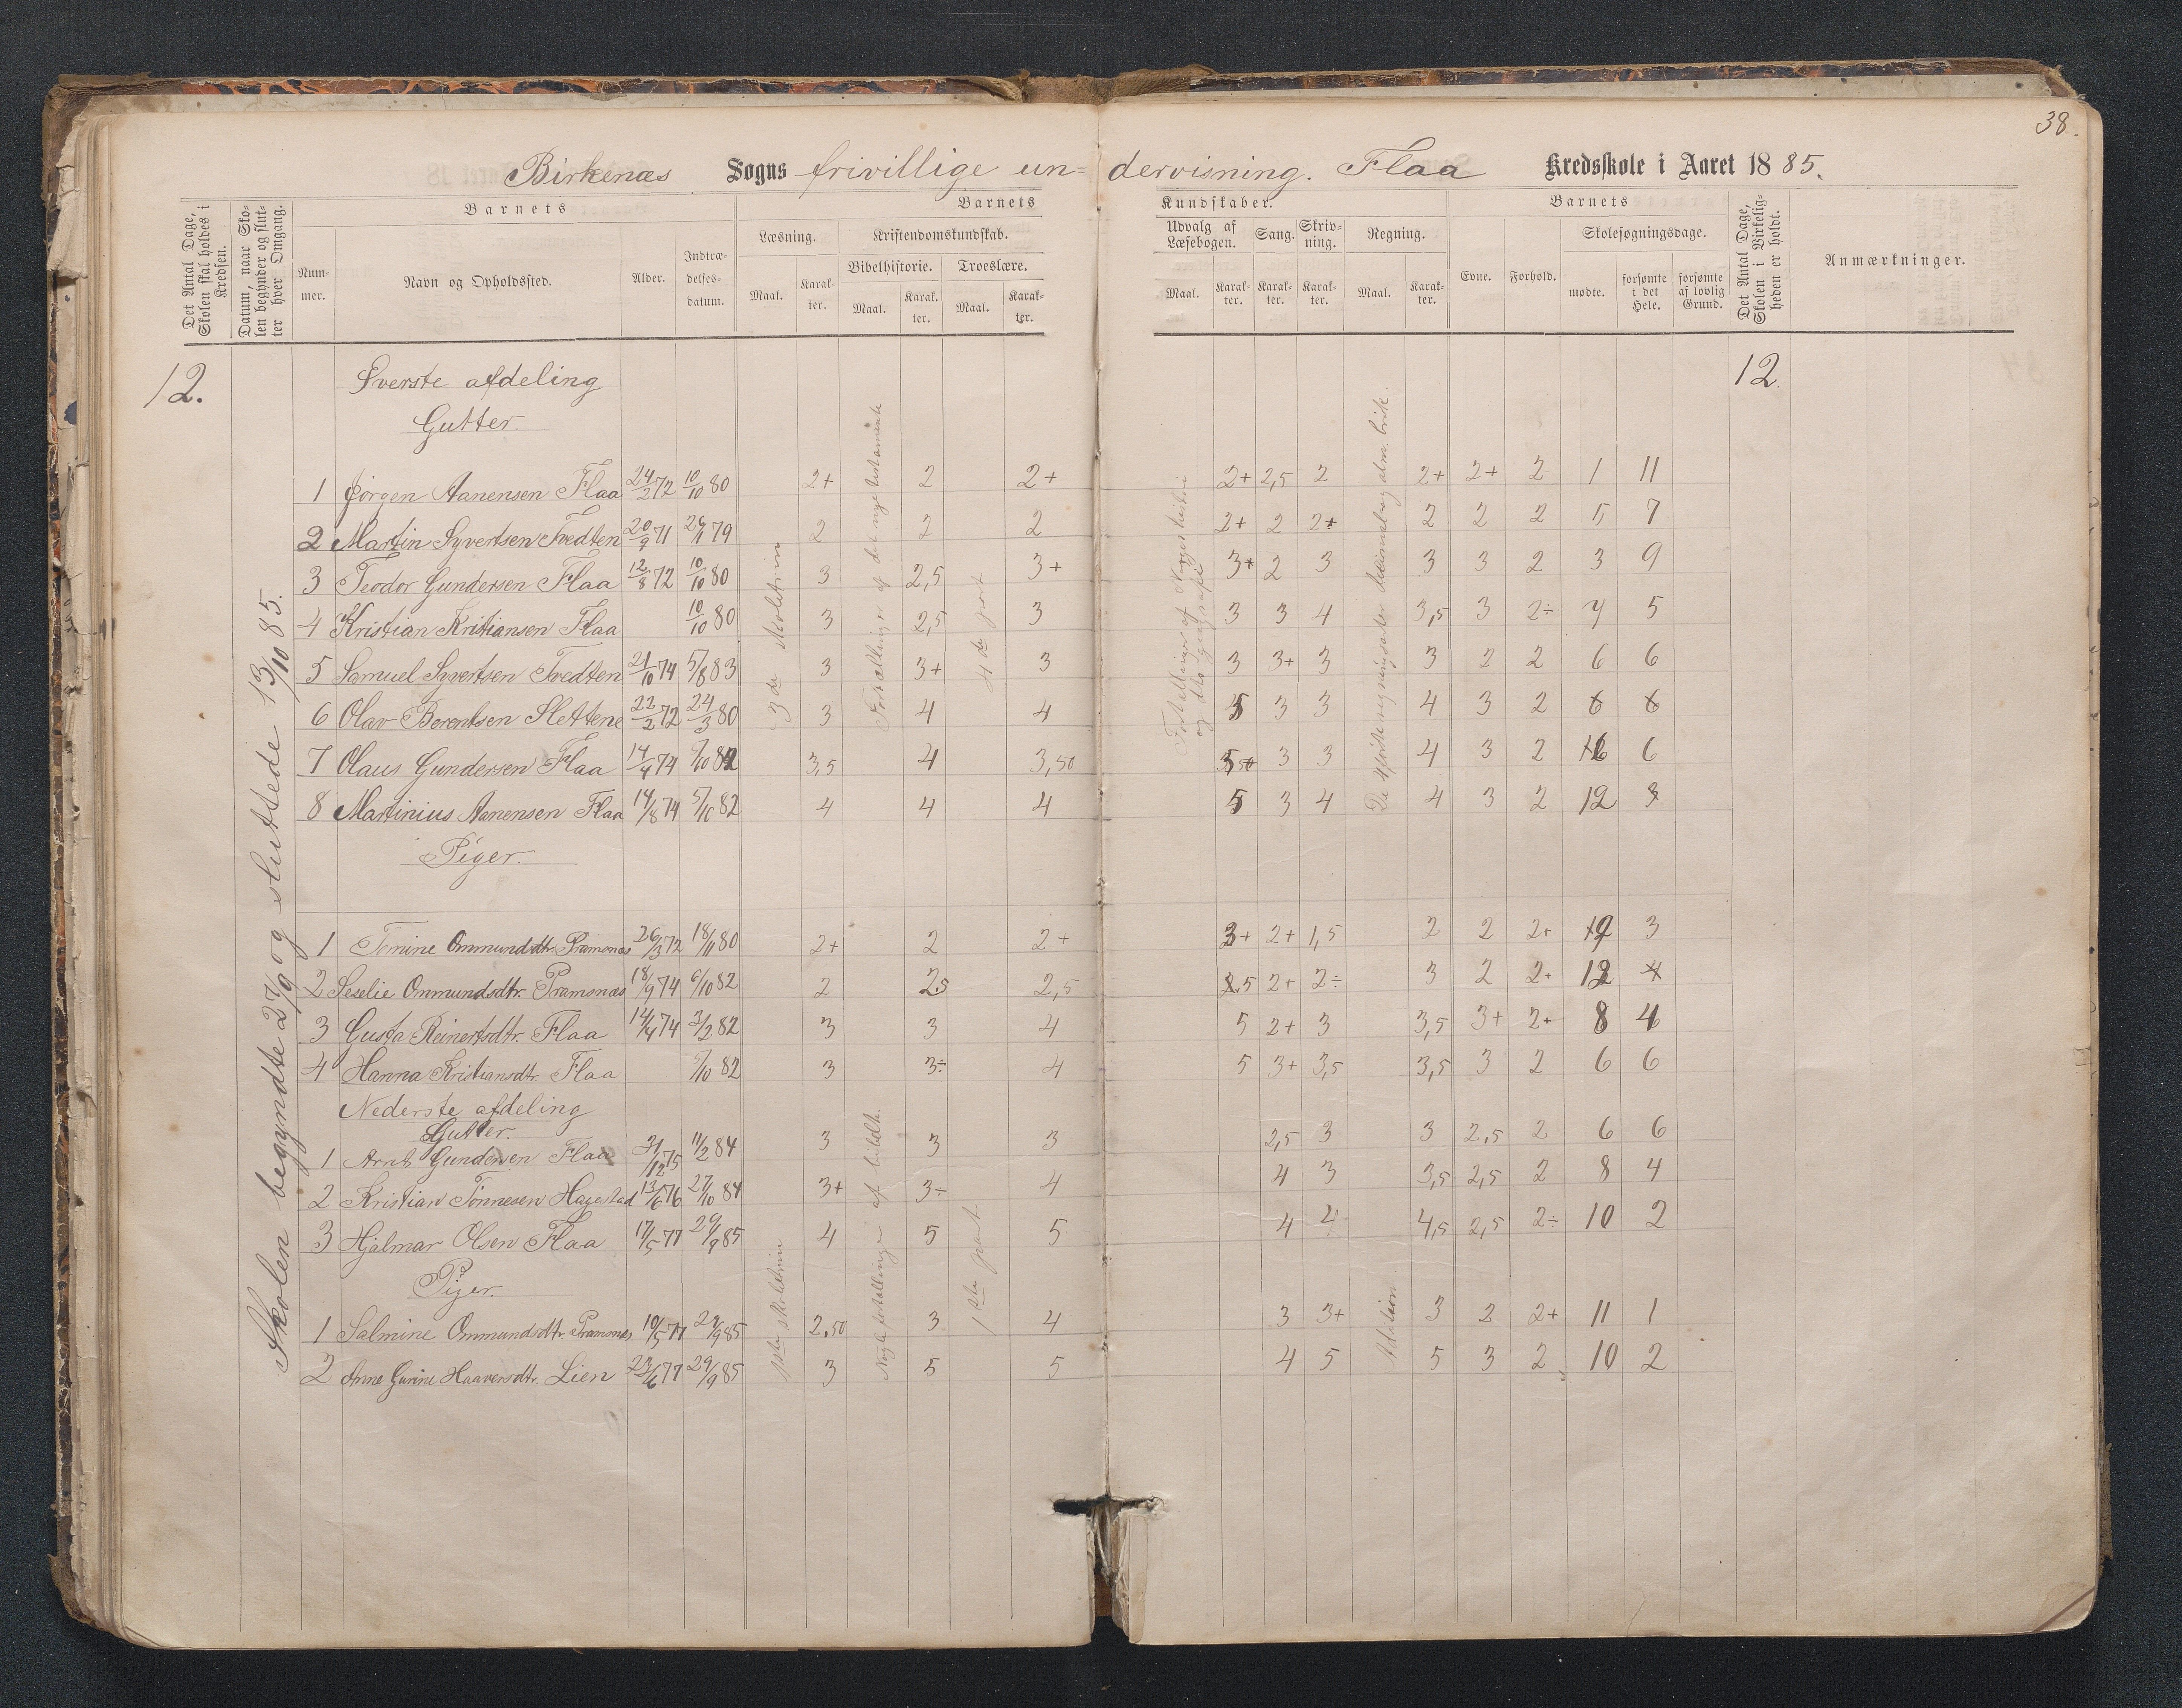 38.
Birkenæs Sogns frivillige un= dervisning. Flaa Kredsskole i Aaret 1885.
Det Antal Dage, Skolen skal holdes i Kredsen.
Datum, naar Skolen begynder og slutter hver Omgang.
Barnets
Nummer.
Navn og Opholdssted.
Alder.
Indtrædelsesdatum.
Barnets Kundskaber.
Læsning.
Maal. Karakter.
Kristendomskundskab.
Bibelhistorie. Troeslære.
Maal. Karakter. Maal. Karakter.
Udvalg af Læsebogen. Sang. Skrivning. Regning.
Maal. Karakter. Karakter. Karakter. Maal. Karakter.
Barnets
Evne. Forhold. Skolesøgningsdage.
mødte. forsømte i det Hele. forsømte af lovlig Grund.
Det Antal Dage, Skolen i Virkeligheden er holdt.
Anmærkninger.
12. 12.
Skolen begyndte 27/9 og sluttede 13/10 85.
Øverste afdeling
Gutter.
1 Jørgen Aanensen Flaa 24/2 72 10/10 80 2+ 2 2+ 2+ 2,5 2 2+ 2+ 2 1 11
2 Martin Syvertsen Tvedten 20/9 71 26/11 79 2 2 2 2+ 2 2+ 2 2 2 5 7
3 Teodor Gundersen Flaa 12/8 72 10/10 80 3 2,5 3+ 3+ 2 3 3 3 2 3 9
4 Kristian Kristiansen Flaa 10/10 80 3 2,5 3 3 3 4 3,5 3 2÷ 7 5
5 Samuel Syvertsen Tvedten 21/10 74 5/8 83 3 3+ 3 3 3+ 3 3 2 2 6 6
6 Olav Berentsen Slettene 22/2 72 24/3 80 3 4 4 5 3 3 4 3 2 6 6
7 Olaus Gundersen Flaa 14/4 74 5/10 82 3,5 4 3,50 3 3 4 3 2 6
8 Martinius Aanensen Flaa 14/8 74 5/10 82 4 4 4 5 3 4 4 3 2 12
Piger.
1 Tomine Ommundsdtr. Præmsnæs 26/3 72 18/11 80 2+ 2 2+ 3+ 2+ 1,5 2 2 2+ 3
2 Seselie Ommundsdtr. Præmsnæs 18/9 74 6/10 82 2 2,5 2,5 2+ 2÷ 3 2 2+ 12
3 Gusta Reinertsdtr. Flaa 14/4 74 3/2 82 3 3 4 5 2+ 3 3,5 3+ 2+ 8 4
4 Hanna Kristiansdtr. Flaa 5/10 82 3 3÷ 4 5 3+ 3,5 3,5 3 2 6 6
Nederste afdeling
Gutter.
1 Arnt Gundersen Flaa 31/12 75 11/2 84 3 3 3 2,5 3 3 2,5 2 6 6
2 Kristian Tönnesen Hagestad 13/6 76 27/10 84 3+ 3÷ 4 4 3 3,5 2,5 2 8 4
3 Hjalmar Olsen Flaa 17/5 77 29/9 85 4 5 5 4 4 4,5 2,5 2÷ 10 2
Piger.
1 Salmine Ommundsdtr. Præmsnæs 10/5 77 29/9 85 2,50 3 4 3 3+ 3 2 2+ 11 1
2 Anne Gurine Haaversdtr. Lien 23/6 77 29/9 85 3 5 5 4 5 5 3 2 10 2
3de skoletrin
Fortællinger af det nye testamente
4de part
Fortællinger af Norges historie
og geografi
De 4 første regningsarter decimal og alm. brøk.
1ste skoletrin
Nogle fortællinger af bibelh.
1ste part
Adition.